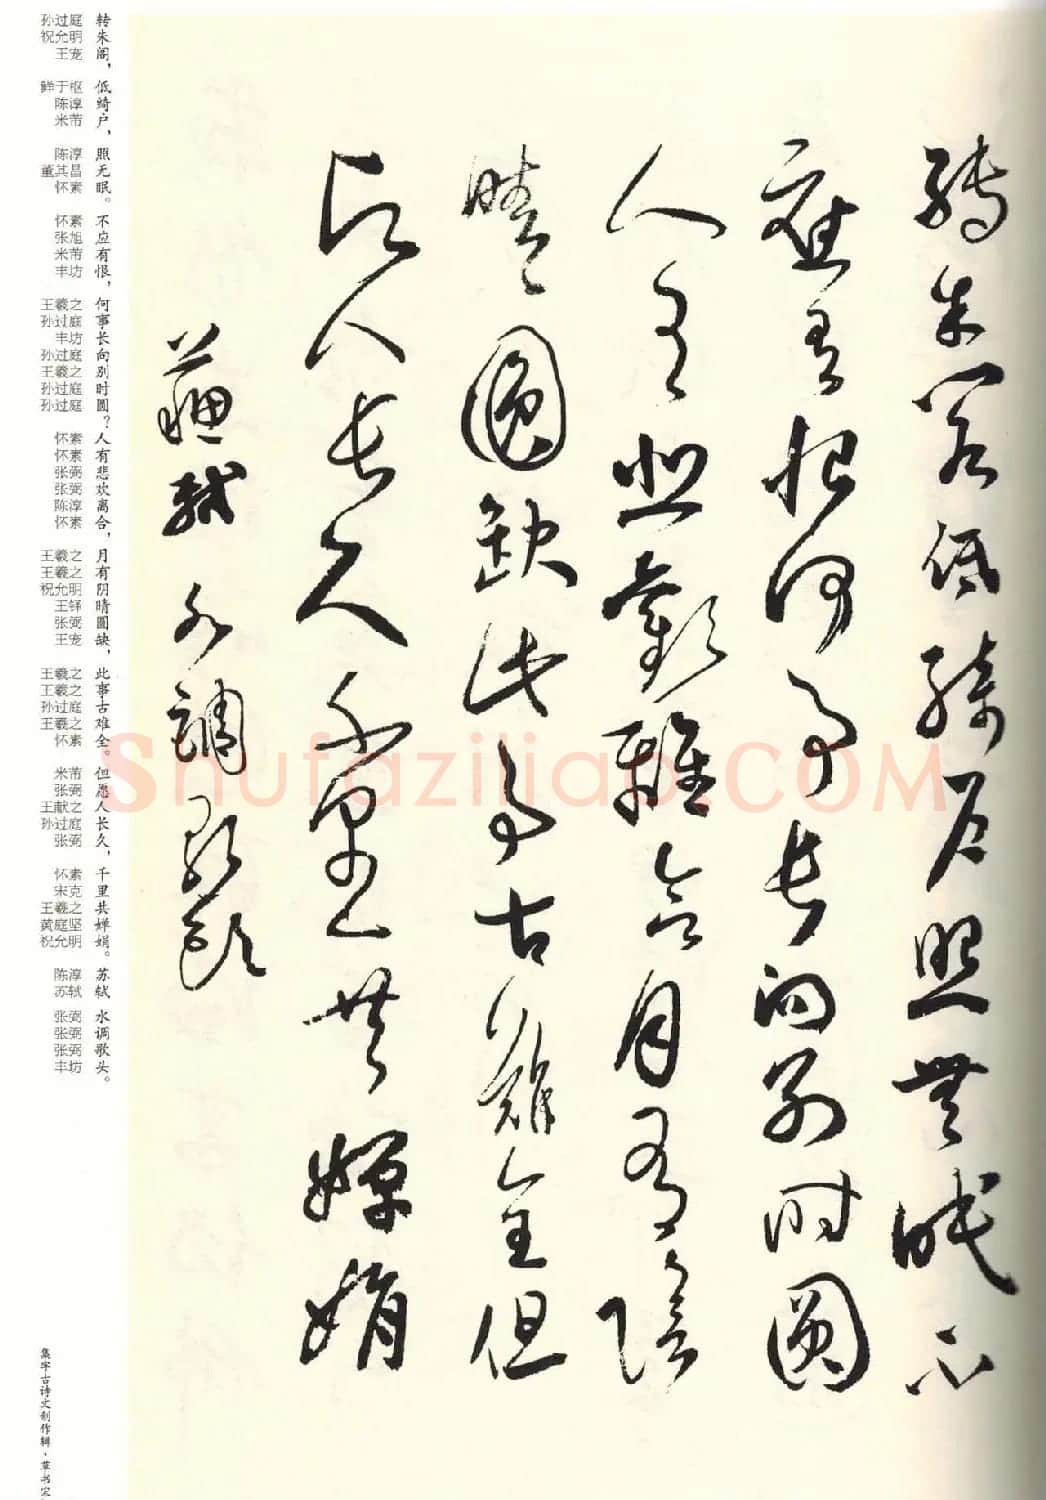 轉朱閣低綺户照無眠不
應有恨何事長向别時圓
人有悲歡離合月有陰
晴圓缺此事古難全但
願人長久千里共嬋娟
蘇軾 水調歌頭
孙过庭 转
祝允明 朱
王宠 阁，
鲜于枢 低
陈淳 绮
米芾 户，
陈淳 照
董其昌 无
怀素 眠。
怀素 不
张旭 应
米芾 有
丰坊 恨，
王羲之 何
孙过庭 事
丰坊 长
孙过庭 向
王羲之 别
孙过庭 时
孙过庭 圆？
怀素 人
怀素 有
张弼 悲
张弼 欢
陈淳 离
怀素 合，
王羲之 月
王羲之 有
祝允明 阴
王铎 晴
张弼 圆
王宠 缺，
王羲之 此
王羲之 事
孙过庭 古
王羲之 难
怀素 全。
米芾 但
张弼 愿
王献之 人
孙过庭 长
张弼 久，
怀素 千
宋克 里
王羲之 共
黄庭坚 婵
祝允明 娟。
陈淳 苏
苏轼 轼
张弼 水
张弼 调
张弼 歌
丰坊 头。
集字古诗文创作辑·草书宋
Shufaziliao.COM